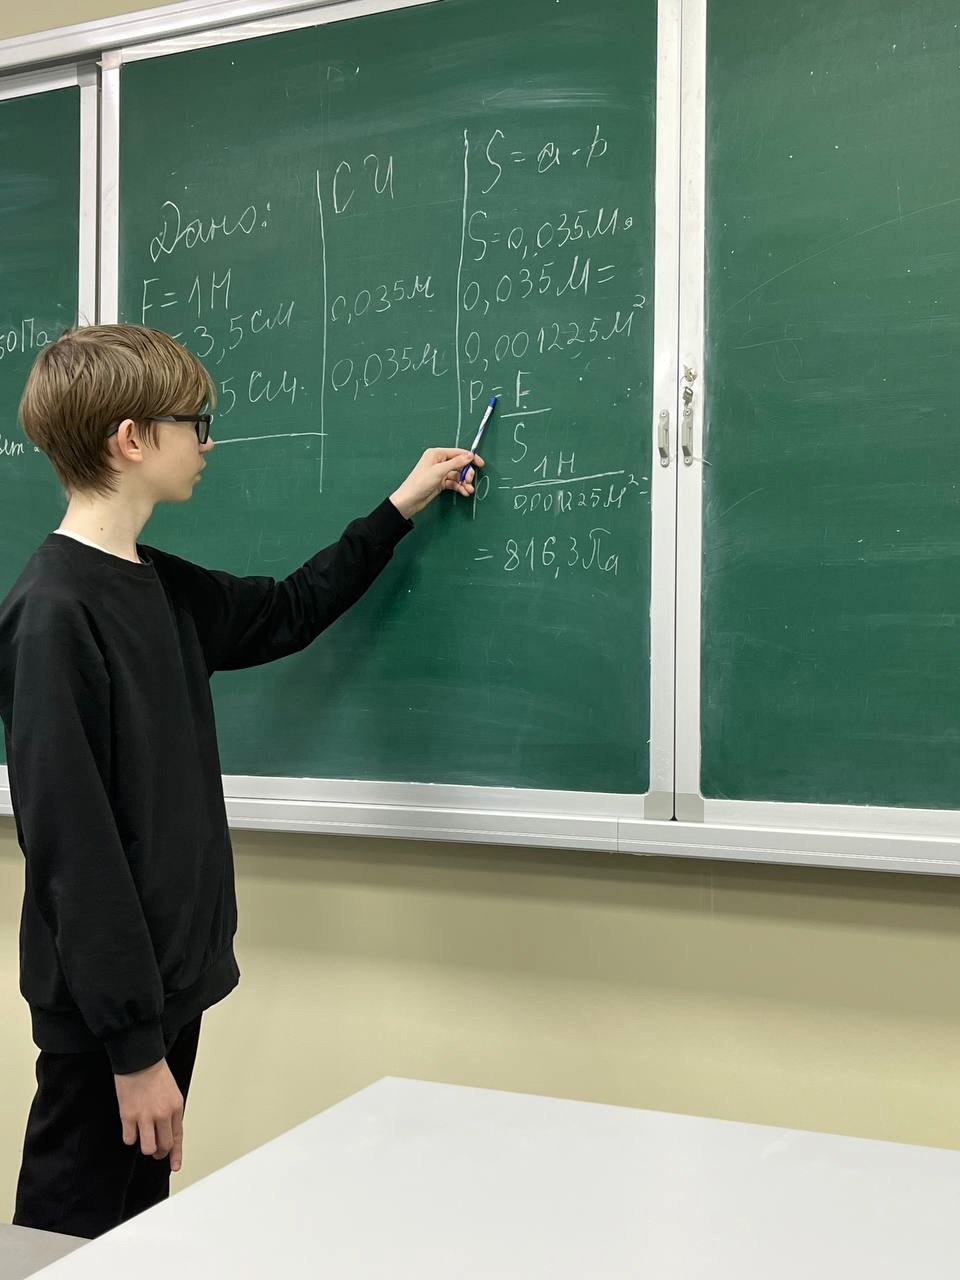 Дано:
F = 1Н
= 3,5 см
5 см.
СИ
0,035м
0,035м
S = a · b
S = 0,035м ·
0,035м =
0,001225м²
P = F
S
p = 1Н
0,001225м² =
= 816,3Па
50Па